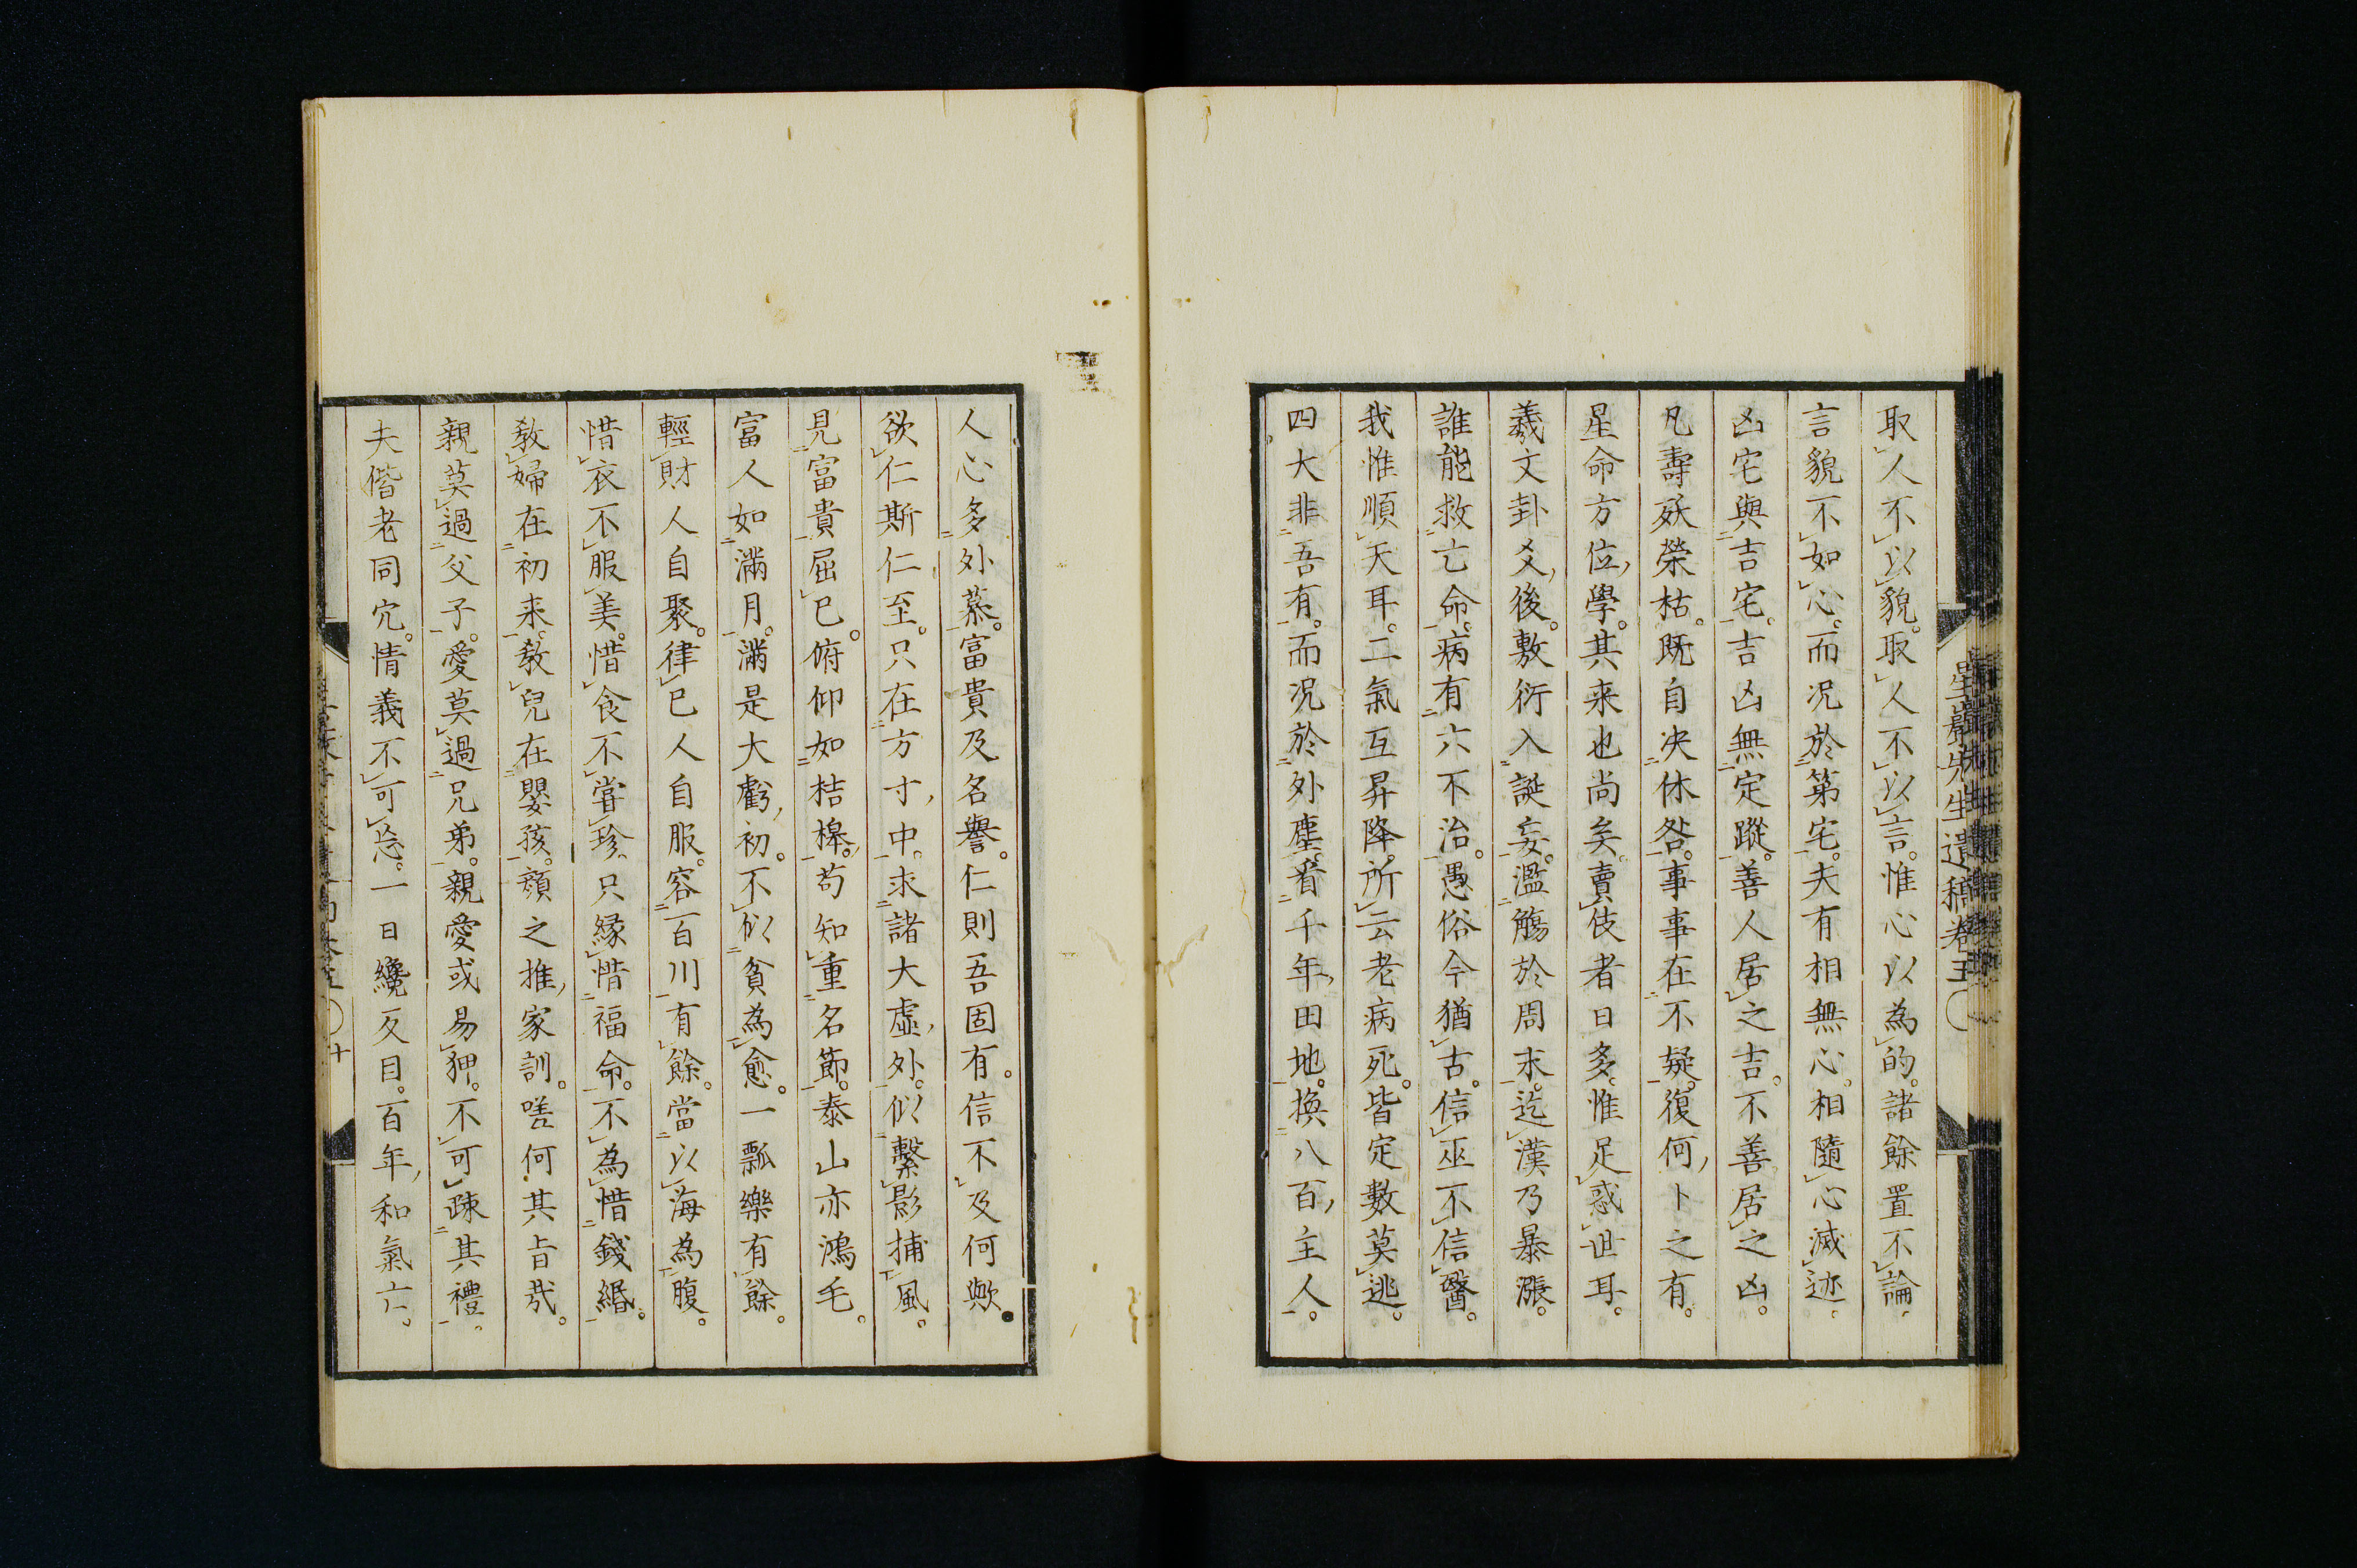 取人不以貌。取人不以言。惟心以為的。諸餘置不論。
言貌不如心。而况於第宅。夫有相無心。相隨心滅迹。
凶宅與吉宅。吉凶無定蹤。善人居之吉。不善居之凶。
凡壽殀榮枯。既自决休咎。事事在不疑。復何卜之有。
星命方位學。其来也尚矣。賣伎者日多。惟足惑世耳。
羲文卦爻後。敷衍入誕妄。濫觴於周末。迄漢乃暴漲。
誰能救亡命。病有六不治。愚俗今猶古。信巫不信醫。
我惟順天耳。二氣互昇降。所云老病死。皆定數莫逃。
四大非吾有。而况於外塵。看千年田地。換八百主人。
人心多外慕。富貴及名譽。仁則吾固有。信不及何歟。
欲仁斯仁至。只在方寸中。求諸大虛外。似繫影捕風。
見富貴屈已。俯仰如桔槔。苟知重名節。泰山亦鴻毛。
富人如滿月。滿是大虧初。不似貧為愈。一瓢樂有餘。
輕財人自聚。律已人自服。容百川有餘。當以海為腹。
惜衣不服美。惜食不嘗珍。只緣惜福命。不為惜錢緡。
教婦在初来。教兒在嬰孩。顏之推家訓。嗟何其旨哉。
親莫過父子。愛莫過兄弟。親愛或易狎。不可疎其禮。
夫偕老同穴。情義不可忘。一日纔反目。百年和氣亡。
星巖先生遺稿卷五
十